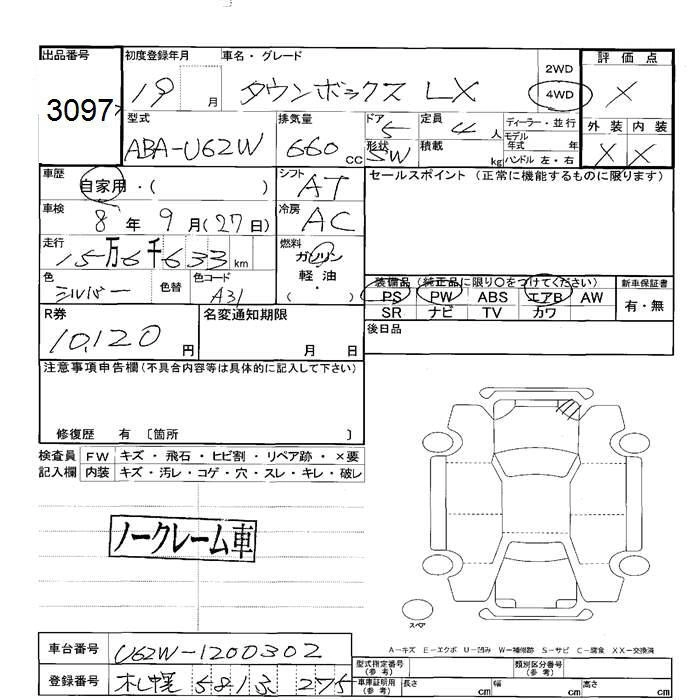 出品番号 初度登録年月 車名・グレード 2WD 評価点
3097 19 月 タウンボックス LX 4WD X
型式 排気量 ドア 5 定員 4 人 ディーラー・並行 外装 内装
ABA-U62W 660 CC 形状 SW 積載 kg モデル年式 年 ハンドル 左・右 X X
車歴 自家用・( ) シフト AT セールスポイント (正常に機能するものに限ります)
車検 8 年 9 月 (27 日) 冷房 AC
走行 15万6千633 km 燃料 ガソリン
軽・油
( ・ )
色 シルバー 色替 色コード A31
装備品 (純正品に限り○をつけてください) 新車保証書
PS PW ABS エアB AW 有・無
SR ナビ TV カワ
R券 10,120 円 名変通知期限 月 日 後日品
注意事項申告欄(不具合内容等は具体的に記入して下さい)
修復歴 有 〔箇所 〕
検査員 FW キズ・飛石・ヒビ割・リペア跡・×要
記入欄 内装 キズ・汚レ・コゲ・穴・スレ・キレ・破レ
ノークレーム車
スペア
A-キズ E-エクボ U-凹み W-補修跡 S-サビ C-腐食 XX-交換済
車台番号 U62W-1200302 型式指定番号(参考) 類別区分番号(参考)
登録番号 札幌 581 275 車庫証明用(参考) 長さ cm 幅 cm 高さ cm